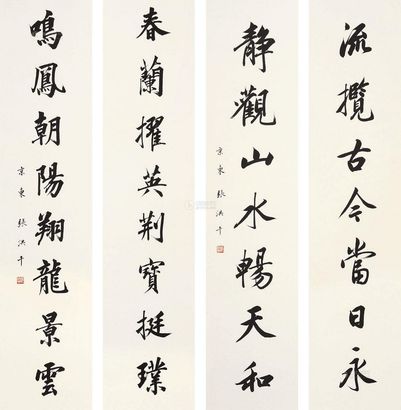 流攬古今當日永
静觀山水暢天和
京東 張洪千
春蘭擢英荆寶挺璞
鳴鳳朝陽翔龍景雲
京東 張洪千